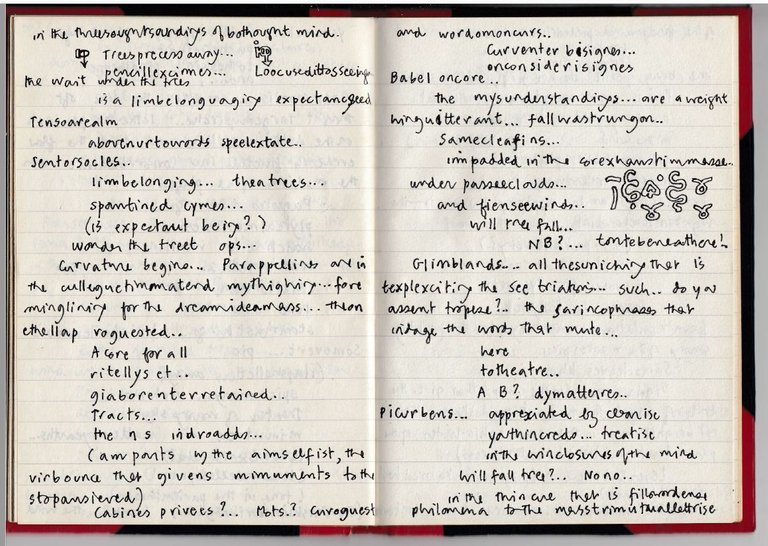 in the threesoughtsandirys of bothought mind.
Treesprecessaway...
pencillexcimes... Loocusedittosseeinge
the wait under the trees
is a limbelonguagirg expectancyseed
Tensoarealm
abovenurtowords speelextate..
sentorsocles...
limbelonging... theatrees...
spantined cymes...
(is expectant beirg?)
wonder the treet ops...
Curvature begins... Parappellines are in
the culleguetimomatend mythighiry... fore
mingliniry for the dreamideamass... theon
ethellap roguested..
A core for all
ritellys et...
giaborenterretained..
Tracts...
the n s indroadds...
(am pants by the aimselfist, the
virbounce that givens mimuments to the
stopansieved)
Cabines privees?... Mbts.? Curoguest
and wordomoncurs..
Curventer bisignes...
onconsiderisignes
Babel oncore..
the mysunderstandirgs... are a weight
hinguitterant... fallwastrungon..
Samecleafins...
impadded in the corexhaustimmesse..
under passeeclouds...
and fienseewinds..
will tree fall..
NB?... tontebeneathere!..
Glimblands... all thesuniching that is
texplexciting the see triations... such.. do you
assent tropese?.. the garincophrases that
indage the words that mute...
here
totheatre..
A B? dymatteres..
Picurbens... appreciated by cleanise
yathincreds... treatise
in the winclosures of the mind
will fall tree?.. No no..
in the thin cue that is fillowordense
philomena to the masstrimutuallettrise